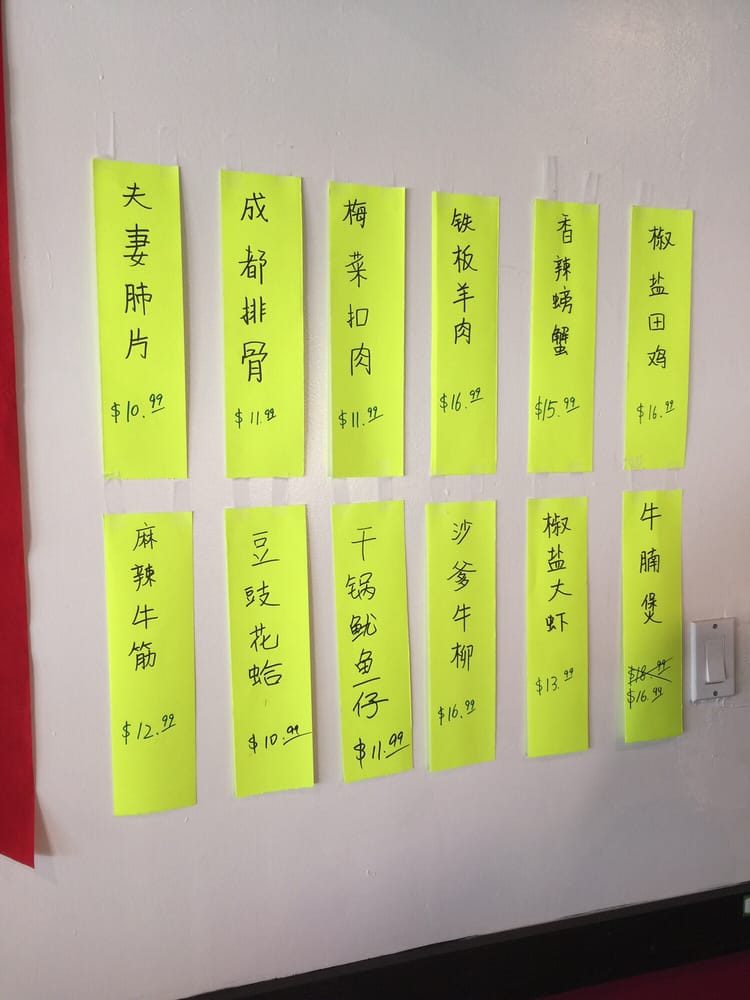 夫妻肺片
$10.99
成都排骨
$11.99
梅菜扣肉
$11.99
铁板羊肉
$16.99
香辣螃蟹
$15.99
椒盐田鸡
$16.99
麻辣牛筋
$12.99
豆豉花蛤
$10.99
干锅鱿鱼仔
$11.99
沙爹牛柳
$16.99
椒盐大虾
$13.99
牛腩煲
$18.99
$16.99